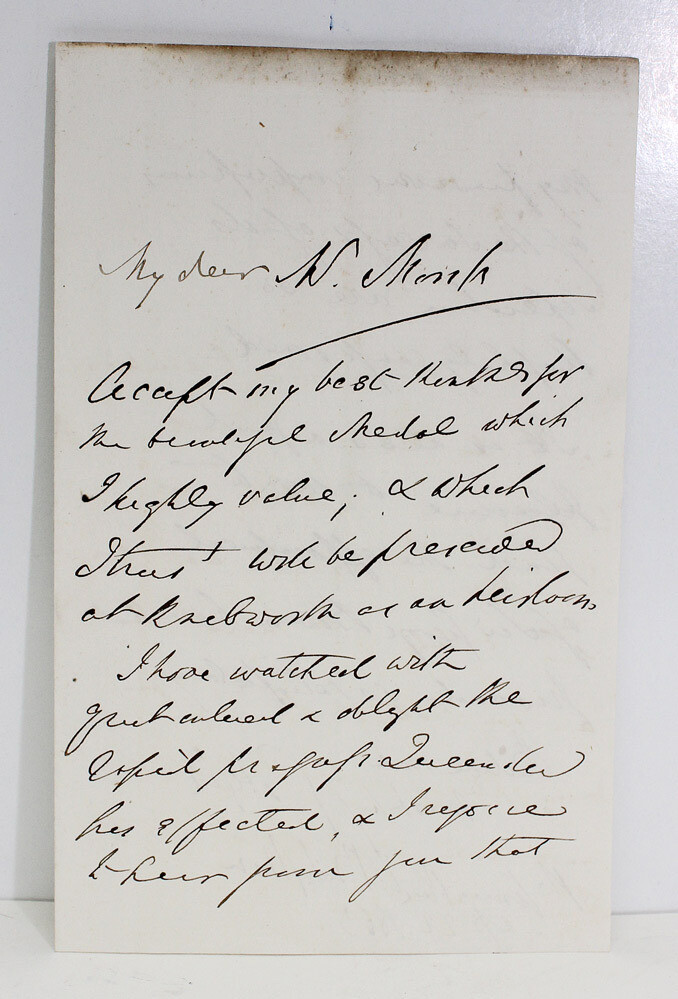 My dear Mr.
Accept my best thanks for
the beautiful Medal which
I highly value; & which
I trust will be preserved
at Knebworth as an heirloom
I have watched with
great interest & delight the
rapid progress Queensland
has effected, & I rejoice
to hear from you that